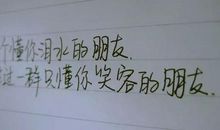 个懂你泪水的朋友.
过一群只懂你笑容的朋友.